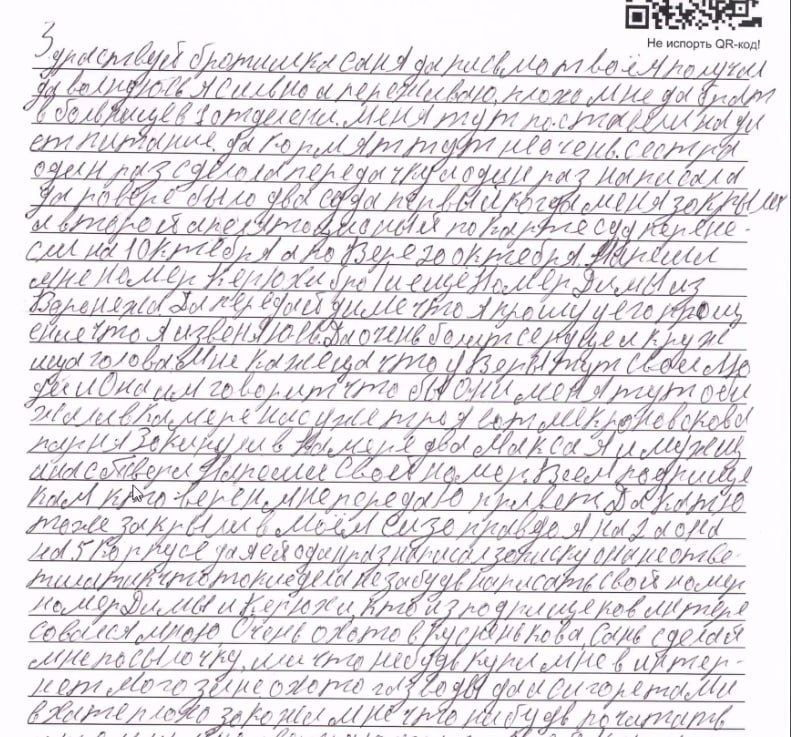 Не испорть QR-код!
Здраствуй братишка Саня да письмо твоё я получил
да волнуюсь я сильно а переживаю, плохо мне да брат
в больнице в 1 отделени. меня тут поставели на ди
ет питание. да кормят тут не очень. сестра
один раз сделола передачку и один раз написала
да по вере было два суда первый когда меня закрыли
а второй апелятционый по карте суд перене-
сли на 10 октебря а по Вере 20 октебря. Напеши
мне номер Керюхи бро и еще номер Димы из
Воронежа Да передай диме что я прошу у его прощ
ение что я извеняюсь. Да очень болит сердце и круж
ица голова. Мне кажеца что у Веры тут свои лю
ди и Она им говорит что бы они меня тут оби
жали в камере нас уже троя
парня Закинули в Камере два Макса я и мужиц
и нас Напеши свой номер. Всем подпище
кам кто верен мне передаю привет. Да Катю
тоже закрыли в моём сизо правда я на 2 а она
на 5 Корпусе да я ей один раз написал записку она не отве-
тила так что токие дела не забудь написать свой номер
номер Димы и Керюхи, кто из подпищеков интере
совался мною Очень охото вкусненькова, Сань сделай
мне посылочку, или что небудь купи мне в интер-
нет могозине охото газводы да и сигоретами
в хате плохо закожи мне что нибудь почитать